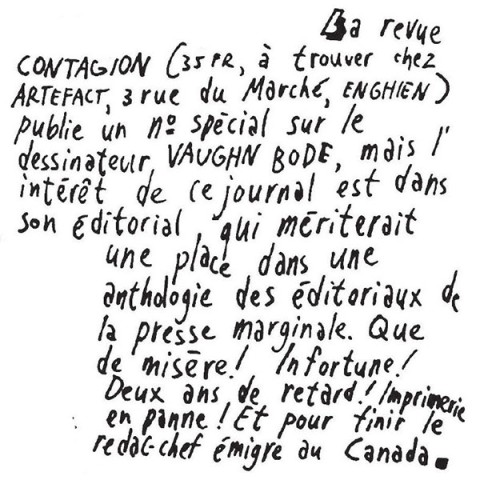 La revue
CONTAGION (35 FR, à trouver chez
ARTEFACT, 3 rue du Marché, ENGHIEN)
publie un nº spécial sur le
dessinateur VAUGHN BODE, mais l'
intérêt de ce journal est dans
son éditorial, qui mériterait
une place dans une
anthologie des éditoriaux de
la presse marginale. Que
de misère! Infortune!
Deux ans de retard! Imprimerie
en panne! Et pour finir le
redac-chef émigre au Canada.